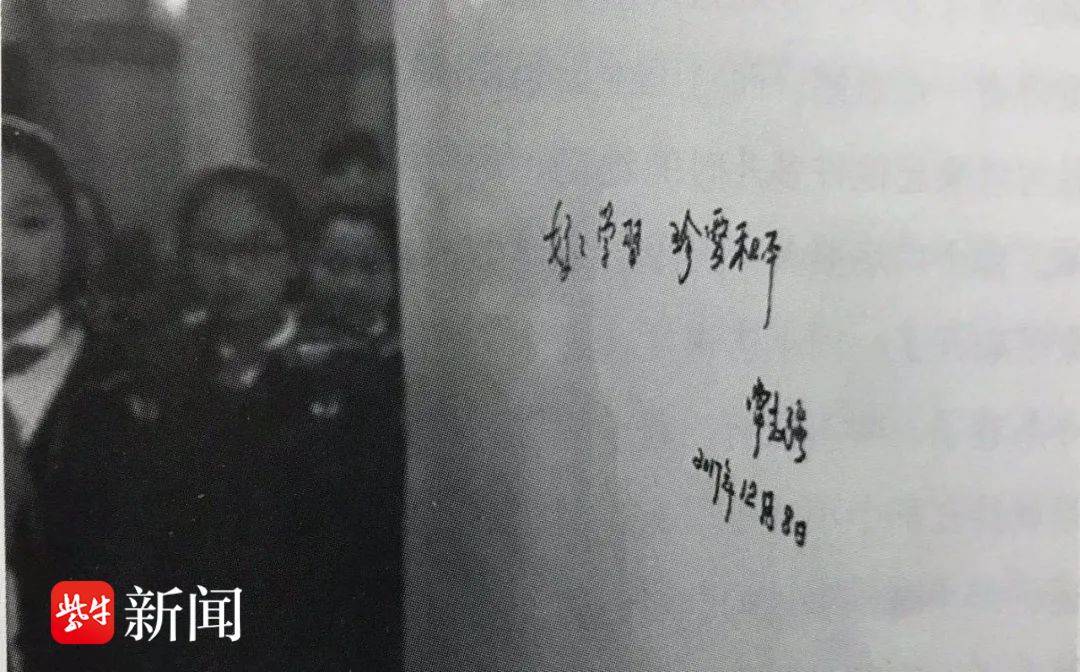 好好学习 珍爱和平
常志强
2017年12月8日
紫牛新闻